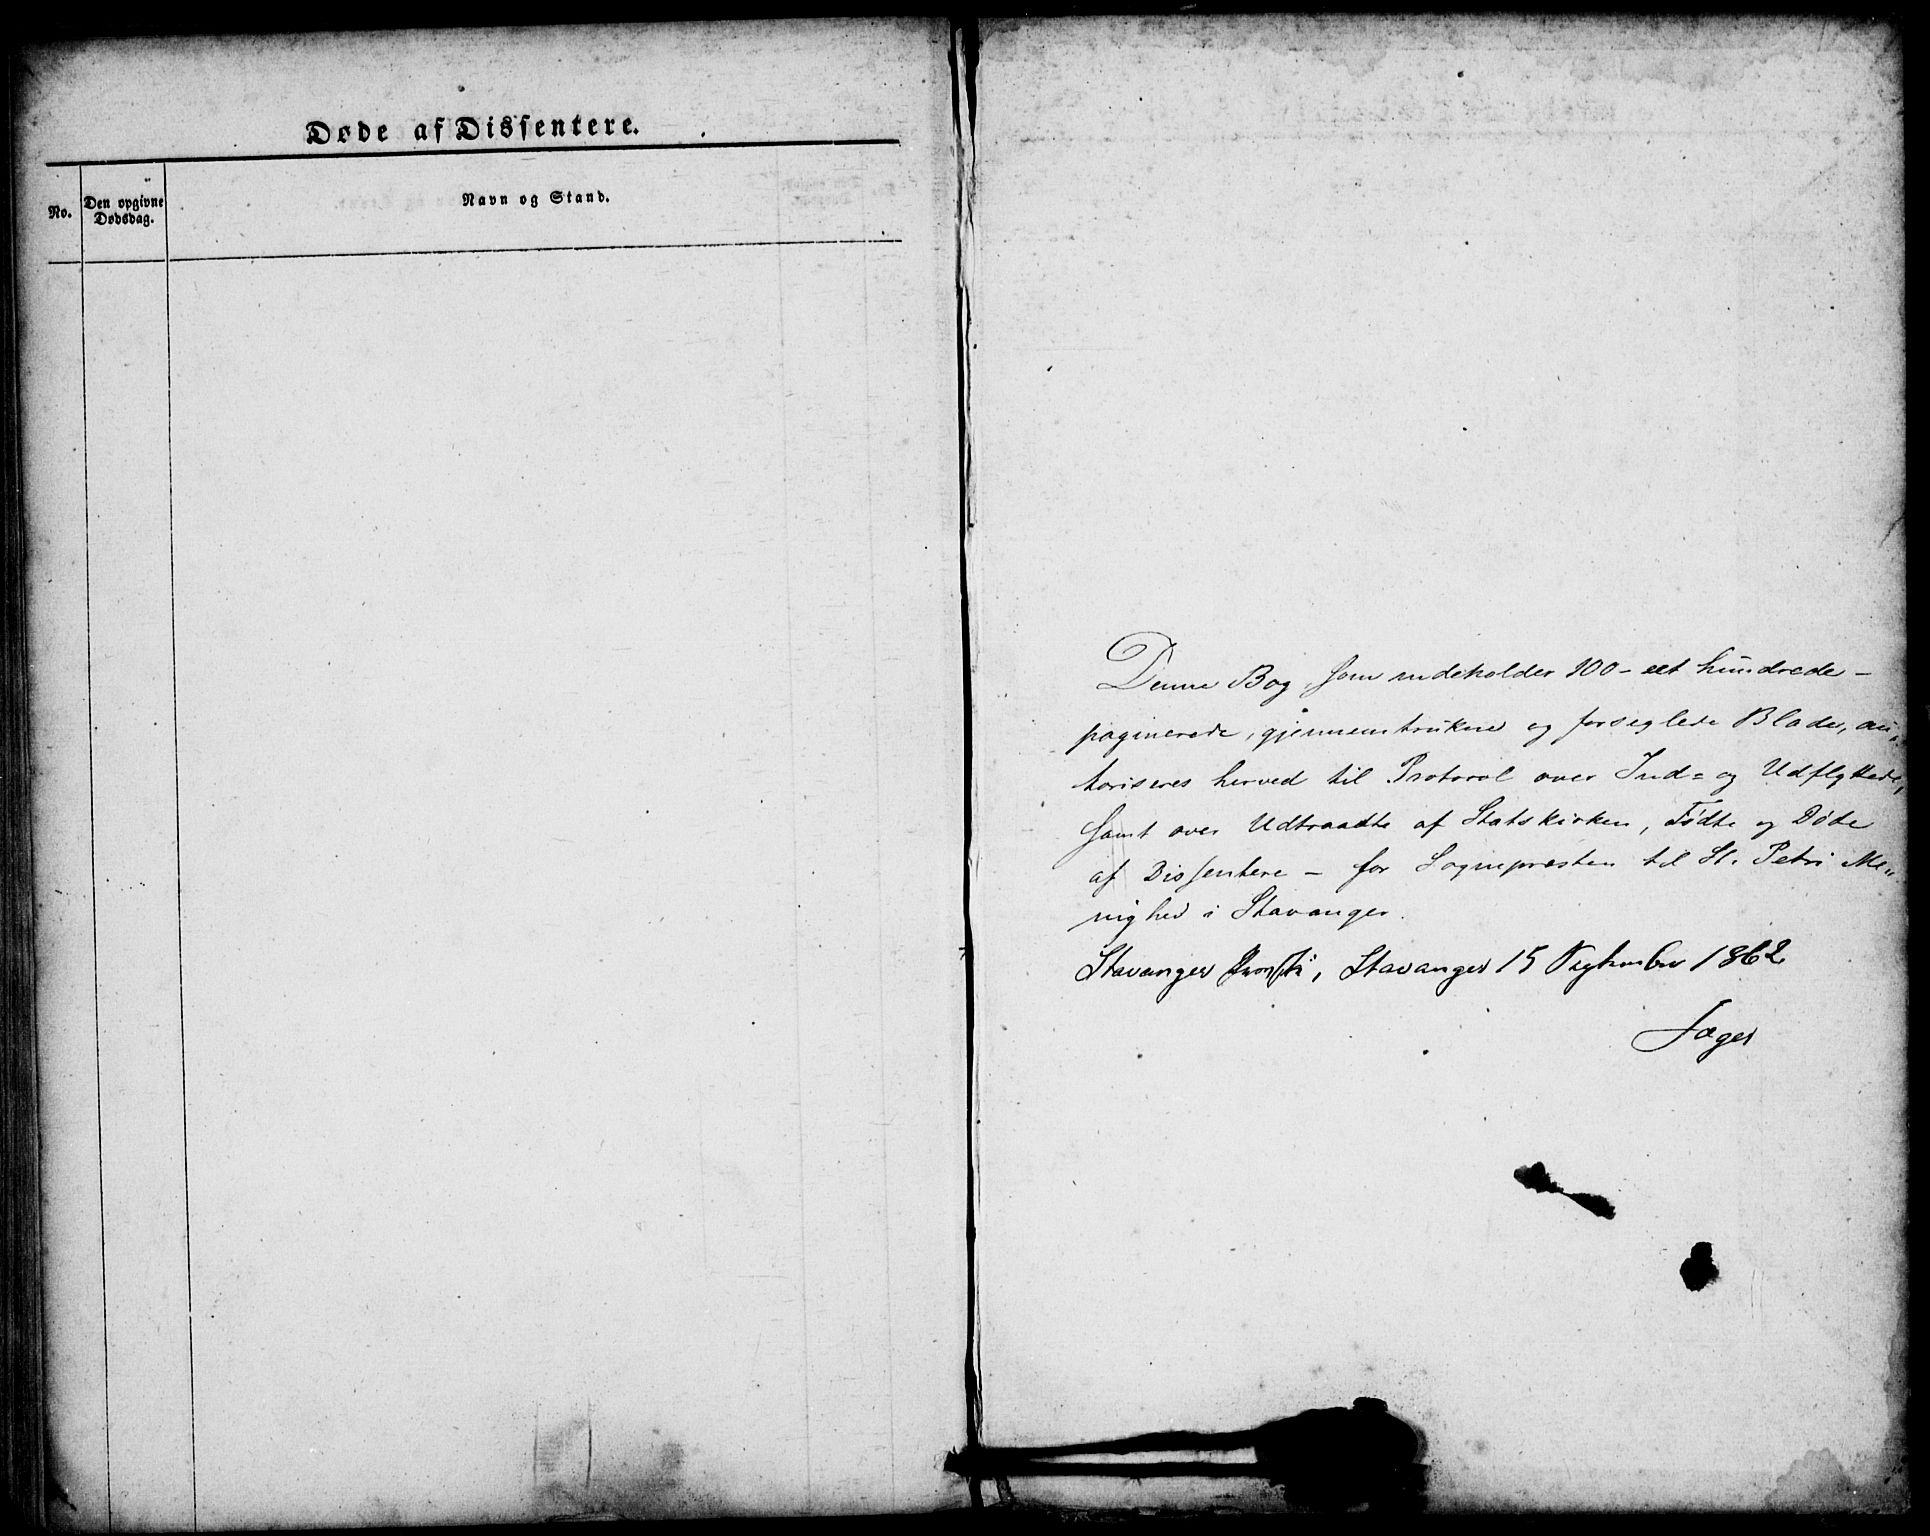 Døde af Dissentere.
No.
Den opgivne
Dødsdag.
Navn og Stand.
Denne Bog, som indeholder 100 - eet hundrede -
paginerede, gjennemtrukne og forseglede Blade, au„
toriseres herved til Protocol over Ind= og Udflyttede,
samt over Udtraadte af Statskirken, Fødte og Døde
af Dissentere - for Sognepresten til St. Petri Me„
nighed i Stavanger.
Stavanger Provsti, Stavanger 15 September 1862
Jæger